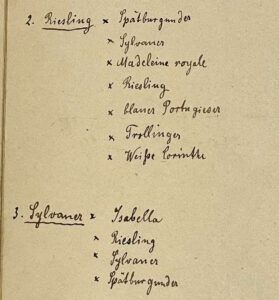 2. Riesling × Spätburgunder
× Sylvaner
× Madeleine royale
× Riesling
× blauer Portugieser
× Trollinger
× Weiße Corinthe
3. Sylvaner × Isabella
× Riesling
× Sylvaner
× Spätburgunder